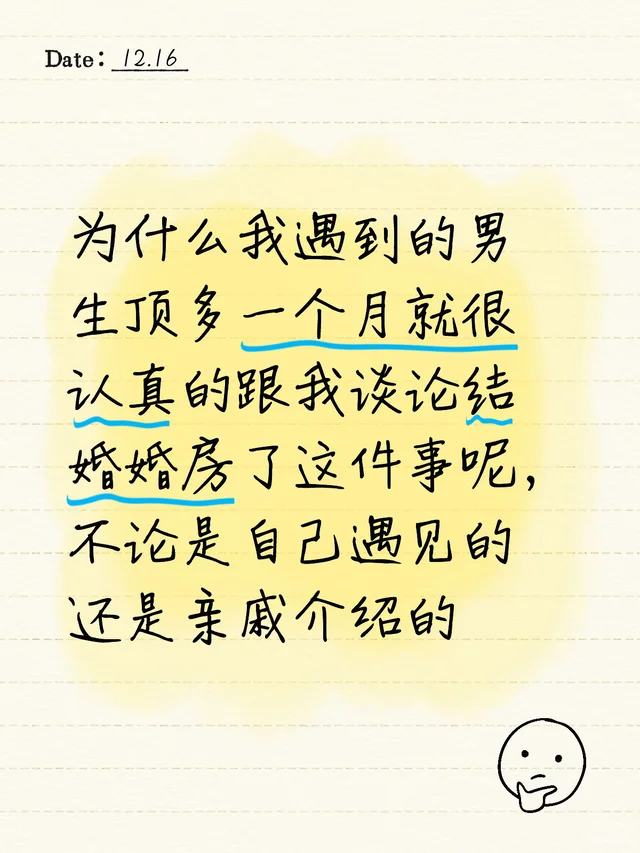 Date: 12.16
为什么我遇到的男
生顶多一个月就很
认真的跟我谈论结
婚婚房了这件事呢,
不论是自己遇见的
还是亲戚介绍的